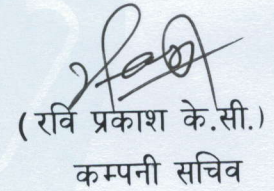 (रवि प्रकाश के.सी.)
कम्पनी सचिव